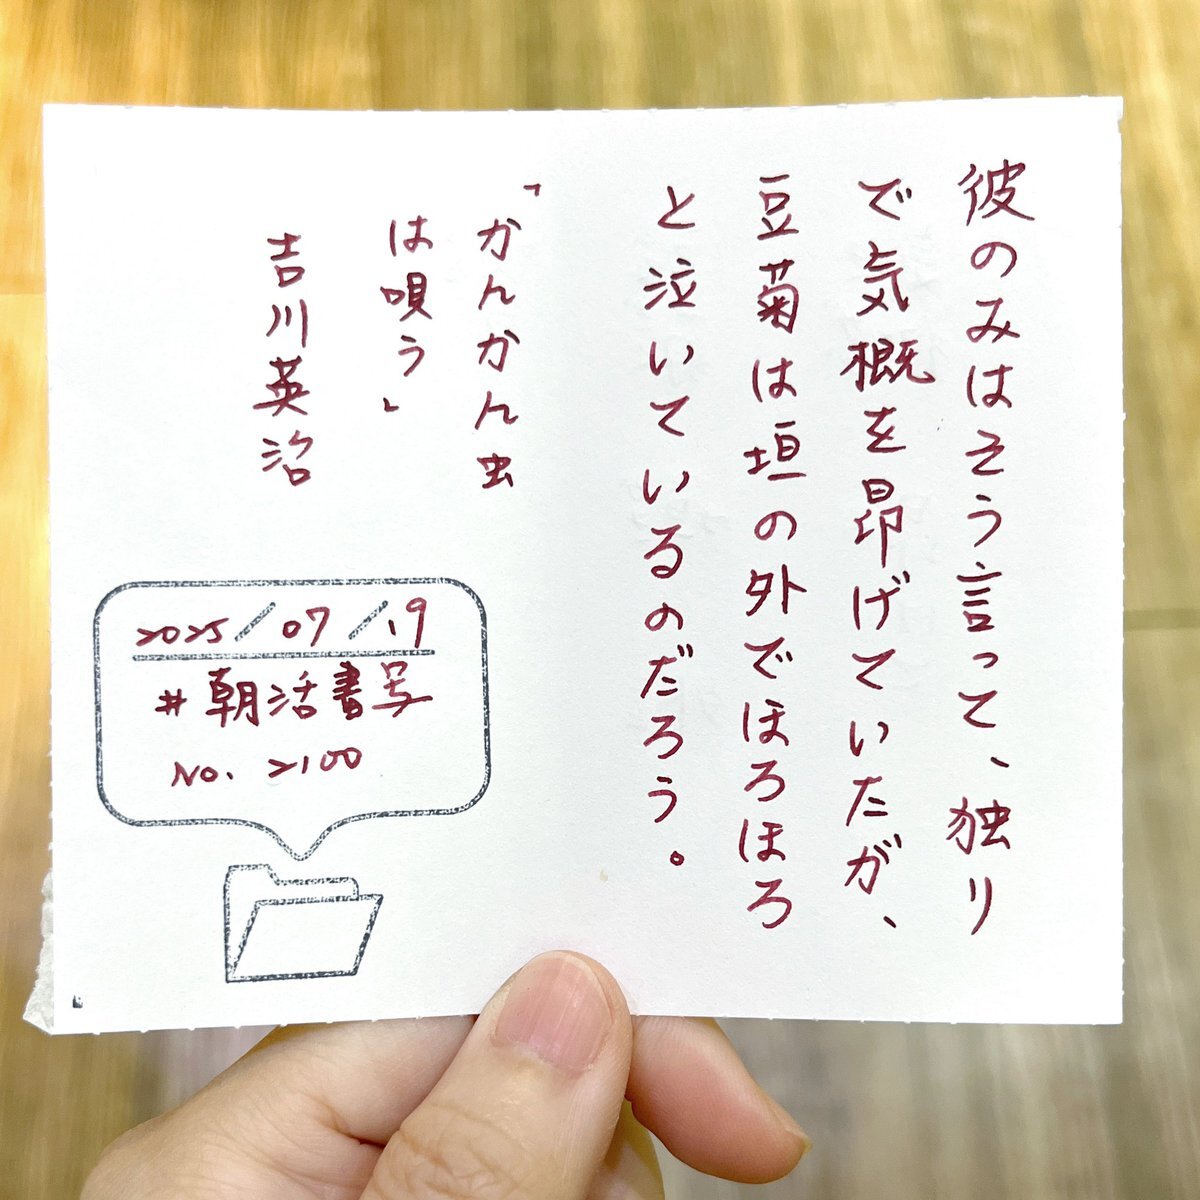 彼のみはそう言って、独り
で気概を昂げていたが、
豆菊は垣の外でほろほろ
と泣いているのだろう。
「かんかん虫
は唄う」
吉川英治
2025/07/19
#朝活書写
No. 2100